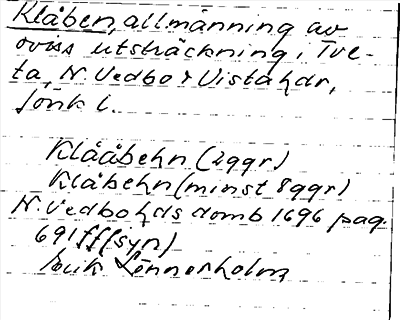 Klåben, allmänning av
oviss utsträckning i Tve-
ta, N. Vedbo & Vista hdr,
Jönk l.
Klååbehn (2ggr)
Klåbehn (minst 8ggr)
N. Vedbo hds domb 1696 pag.
691 ff (syn)
Erik Lönnerholm